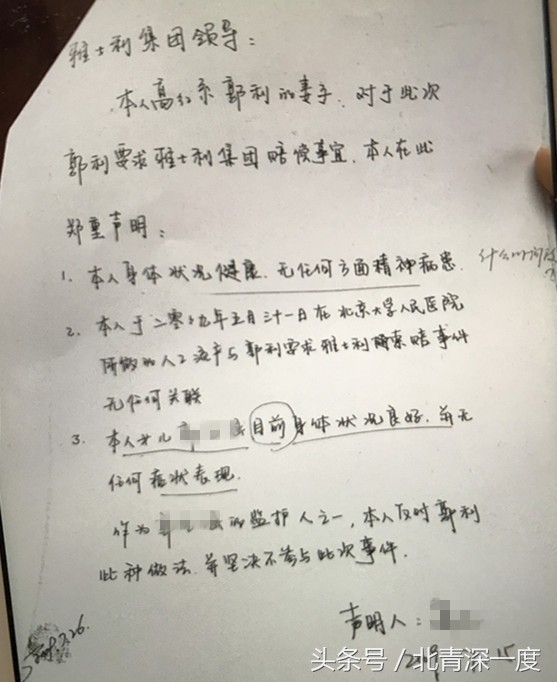 雅士利集团领导：
本人高红系郭利的妻子，对于此次
郭利要求雅士利集团赔偿事宜，本人在此
郑重声明：
1. 本人身体状况健康，无任何方面精神病患。
2. 本人于二零 九年五月三十一日在北京大学人民医院
所做的人工流产与郭利要求雅士利 索赔事件
无任何关联
3. 本人女儿 目前身体状况良好，并无
任何症状表现。
作为 的监护人之一，本人反对郭利
此种做法，并坚决不参与此次事件。
声明人：
头条号／北青深一度